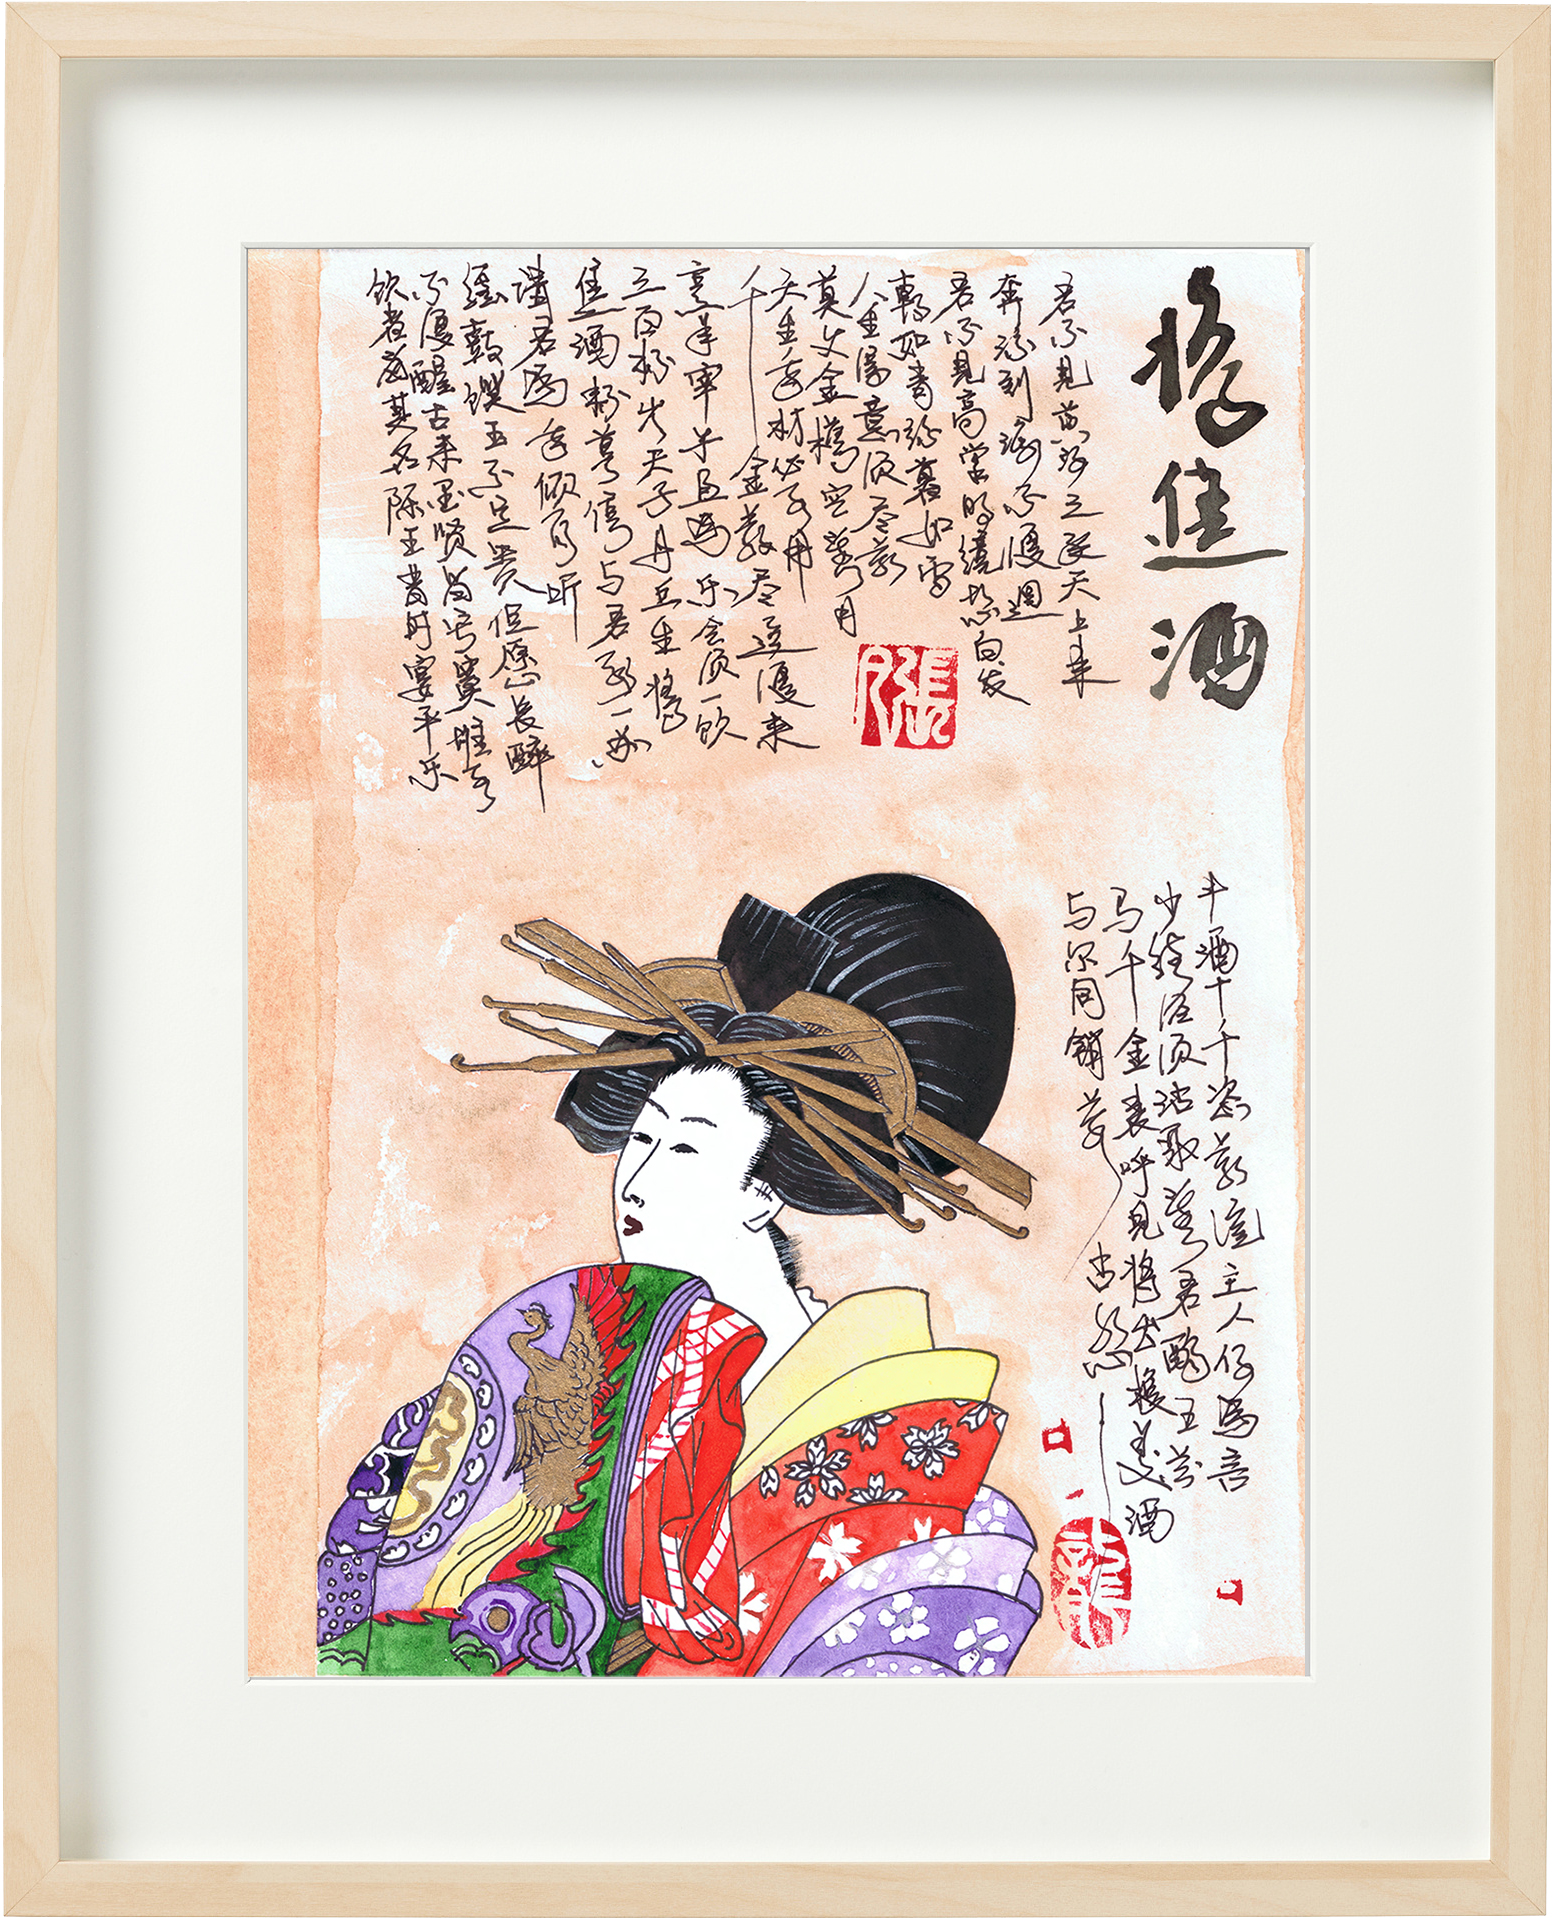 将進酒
君不見黄河之水天上来
奔流到海不復迴
君不見高堂明鏡悲白发
朝如青丝暮如雪
人生得意须尽欢
莫使金樽空對月
天生我材必有用
千金散尽還復来
烹羊宰牛且為乐会须一饮
三百杯岑夫子丹丘生将
進酒杯莫停与君歌一曲
请君為我倾耳听
鐘鼓馔玉不足贵但愿长醉
不復醒古来圣贤皆寂寞惟有
饮者留其名陈王昔时宴平乐
張
斗酒十千恣欢谑主人何為言
少钱径须沽取對君酌五花
马千金裘呼兒将出换美酒
与尔同销萬古愁
龍